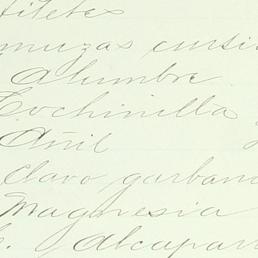 filetes
muzas cursi
Alumbre
Cochinilla
Añil
Clavo garban
Magnesia
Alcaparr